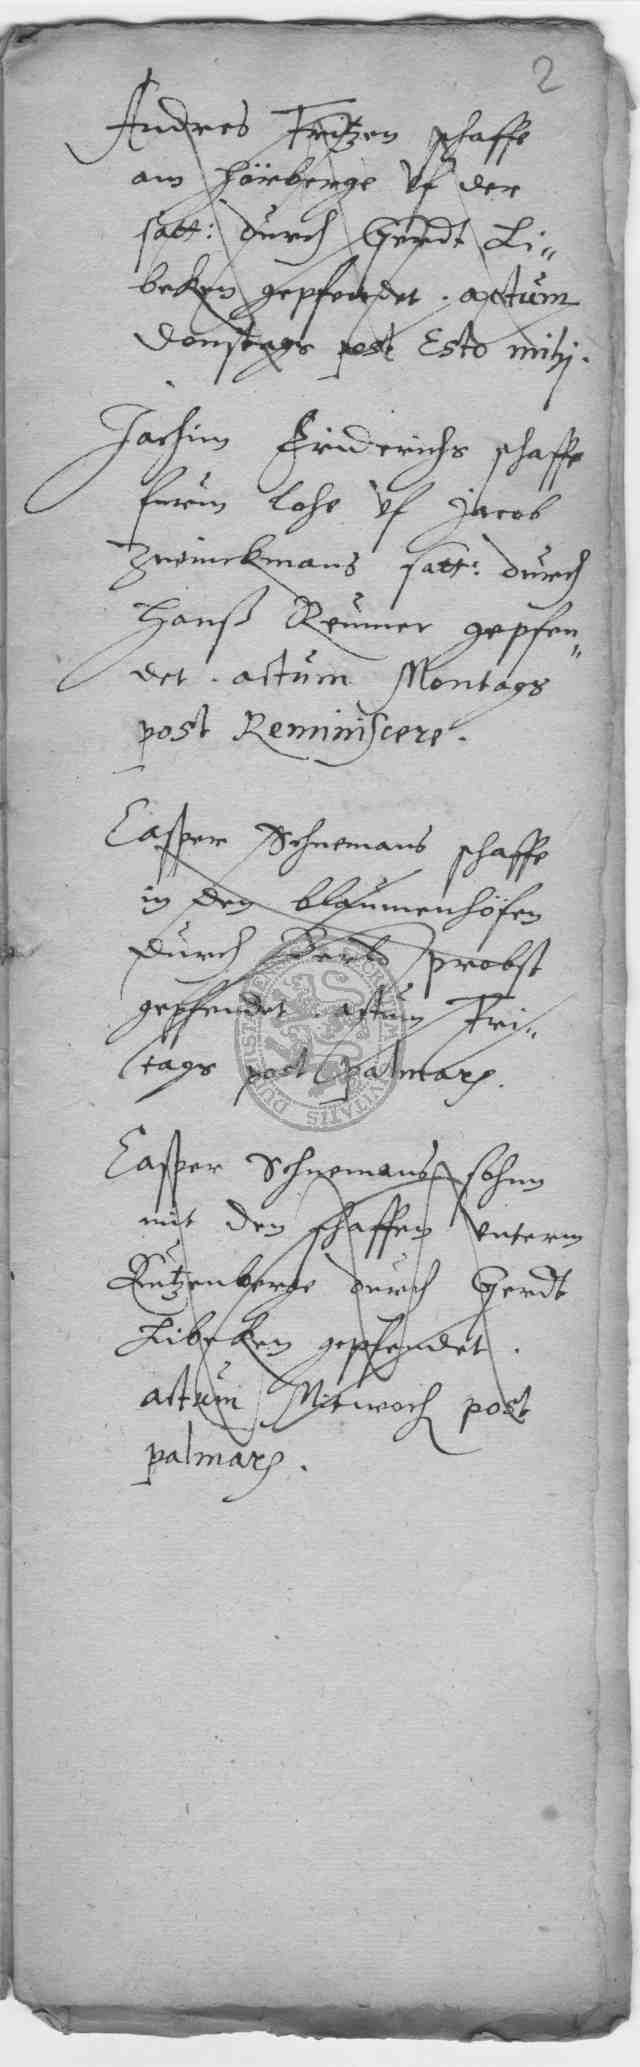 2
Andres Fritzen schaffe
am hörberge vf der
satt: durch Gerdt Li„
beken gepfendet. actum
Donstags post Esto mihj.
Jachim Friderichs schaffe
furm lohe vf Jacob
Zweinckmans satt: durch
Hanß Reumer gepfen„
det. actum Montags
post Reminiscere.
Casper Schnemans schaffe
in den blaumenhöfen
durch probst
gepfendet. actum Fri„
tags post palmarum.
Casper Schnemans sohnn
mit den schaffen vnterm
Kutzenberge durch Gerdt
Libeken gepfendet.
actum Mitwoch post
palmarum.